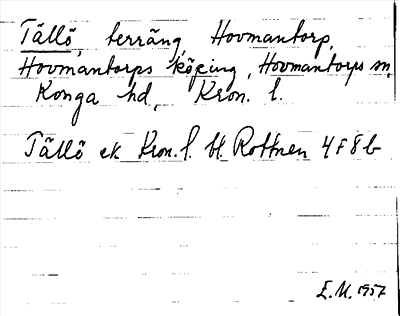 Tällö, terräng, Hovmantorp,
Hovmantorps köping, Hovmantorps sn,
Konga hd, Kron. l.
Tällö ek Kron. l. bl. Rottnen 4F8b
E.M. 1957